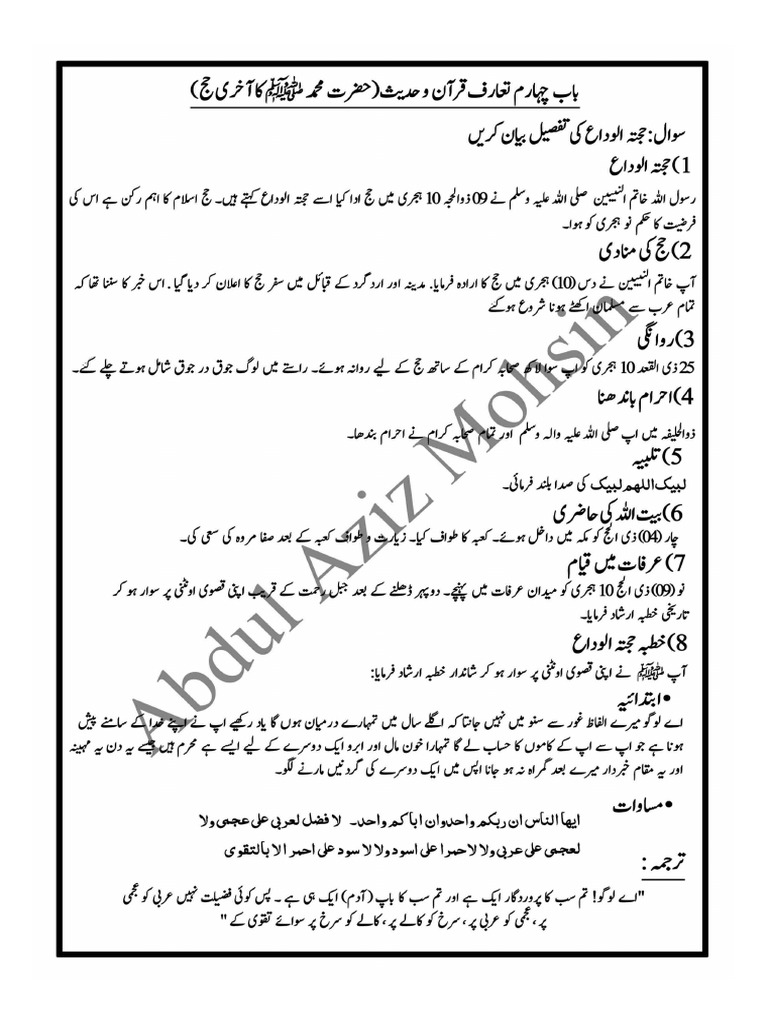 باب چہارم تعارف قرآن و حدیث(حضرت محمد ﷺ کا آخری حج)
سوال: حجتہ الوداع کی تفصیل بیان کریں
1) حجتہ الوداع
رسول اللہ خاتم النبیین صلی اللہ علیہ وسلم نے 09 ذوالحجہ 10 ہجری میں حج ادا کیا اسے حجتہ الوداع کہتے ہیں۔ حج اسلام کا اہم رکن ہے اس کی
فرضیت کا حکم نو ہجری کو ہوا۔
2) حج کی منادی
آپ خاتم النبیین نے دس (10) ہجری میں حج کا ارادہ فرمایا۔ مدینہ اور اردگرد کے قبائل میں سفر حج کا اعلان کر دیا گیا . اس خبر کا سننا تھا کہ
تمام عرب سے مسلمان اکھٹے ہونا شروع ہوگئے
3) روانگی
25 ذی القعد 10 ہجری کو اپ سوا لاکھ صحابہ کرام کے ساتھ حج کے لیے روانہ ہوئے۔ راستے میں لوگ جوق در جوق شامل ہوتے چلے گئے۔
4) احرام باندھنا
ذوالحلیفہ میں اپ صلی اللہ علیہ والہ وسلم اور تمام صحابہ کرام نے احرام بندھا۔
5) تلبیہ
لبیک اللھم لبیک کی صدا بلند فرمائی۔
6) بیت اللہ کی حاضری
چار (04) ذی الحج کو مکہ میں داخل ہوئے۔ کعبہ کا طواف کیا۔ زیارت و طواف کعبہ کے بعد صفا مروہ کی سعی کی۔
7) عرفات میں قیام
نو (09) ذی الحج 10 ہجری کو میدان عرفات میں پہنچے۔ دوپہر ڈھلنے کے بعد جبل رحمت کے قریب اپنی قصوی اونٹنی پر سوار ہو کر
تاریخی خطبہ ارشاد فرمایا۔
8) خطبہ حجتہ الوداع
آپ ﷺ نے اپنی قصوی اونٹنی پر سوار ہو کر شاندار خطبہ ارشاد فرمایا:
• ابتدائیہ
اے لوگو میرے الفاظ غور سے سنو میں نہیں جانتا کہ اگلے سال میں تمہارے درمیان ہوں گا یاد رکھیے اپ نے اپنے خدا کے سامنے پیش
ہونا ہے جو اپ سے اپ کے کاموں کا حساب لے گا تمہارا خون مال اور ابرو ایک دوسرے کے لیے ایسے ہے محرم ہیں جیسے یہ دن یہ مہینہ
اور یہ مقام خبردار میرے بعد گمراہ نہ ہو جانا اپس میں ایک دوسرے کی گردنیں مارنے لگو۔
• مساوات
ایھا الناس ان ربکم واحد وان اباکم واحد۔ لا فضل لعربی علی عجمی ولا
لعجمی علی عربی ولا لاحمر علی اسود ولا لا سود علی احمر الا بالتقوی
ترجمہ :
"اے لوگو! تم سب کا پروردگار ایک ہے اور تم سب کا باپ (آدم) ایک ہی ہے ۔ پس کوئی فضیلت نہیں عربی کو عجمی
پر ، عجمی کو عربی پر ، سرخ کو کالے پر ، کالے کو سرخ پر سوائے تقوی کے "
Abdul Aziz Mohsin